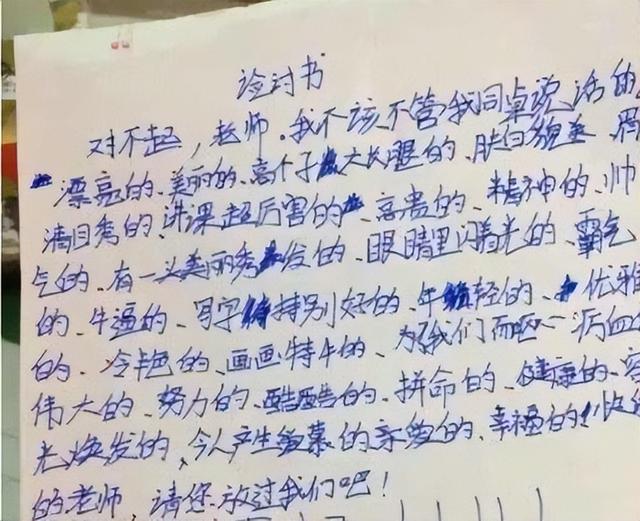 检讨书
对不起，老师。我不该不管我同桌说话的
漂亮的、美丽的、高个子大长腿的、肤白貌美、眉
清目秀的、讲课超厉害的、高贵的、精神的、帅
气的、有一头美丽秀发的、眼睛里闪着光的、霸气
的、牛逼的、写字特别好的、年轻的、优雅
的、冷艳的、画画特牛的、为我们而呕心沥血的
伟大的、努力的、酷酷的、拼命的、健康的、容
光焕发的、令人产生羡慕的亲爱的、幸福的、快
的老师，请您放过我们吧！